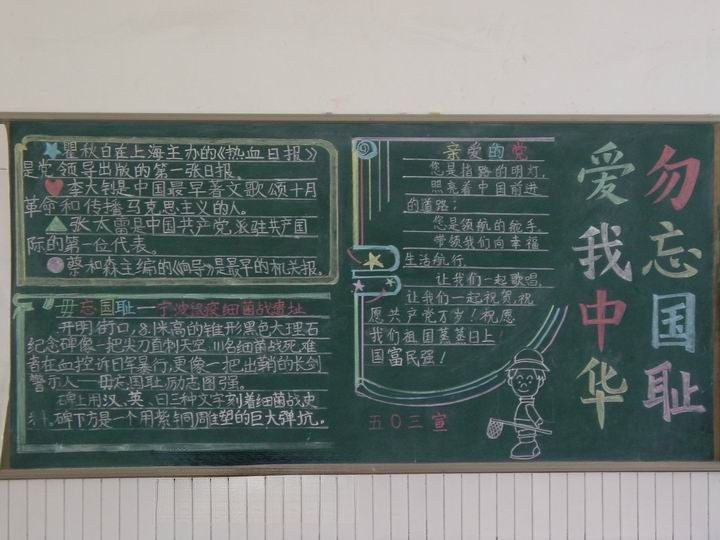 勿忘国耻
爱我中华
瞿秋白在上海主办的《热血日报》
是党领导出版的第一张日报。
李大钊是中国最早著文歌颂十月
革命和传播马克思主义的人。
张太雷是中国共产党派驻共产国
际的第一位代表。
蔡和森主编的《向导》是最早的机关报。
毋忘国耻——宁波鼠疫细菌战遗址
开明街口，8.1米高的锥形黑色大理石
纪念碑像一把尖刀直刺天空，111名细菌战死难
者在血控诉日军暴行，更像一把出鞘的长剑
警示人——毋忘国耻，励志图强。
碑上用汉、英、日三种文字刻着细菌战史
料。碑下方是一个用紫铜雕塑的巨大弹坑。
亲爱的党
您是指路的明灯，
照亮着中国前进
的道路；
您是领航的舵手，
带领我们向幸福
生活航行。
让我们一起歌唱，
让我们一起祝贺，祝
愿共产党万岁！祝愿
我们祖国蒸蒸日上！
国富民强！
五〇三宣